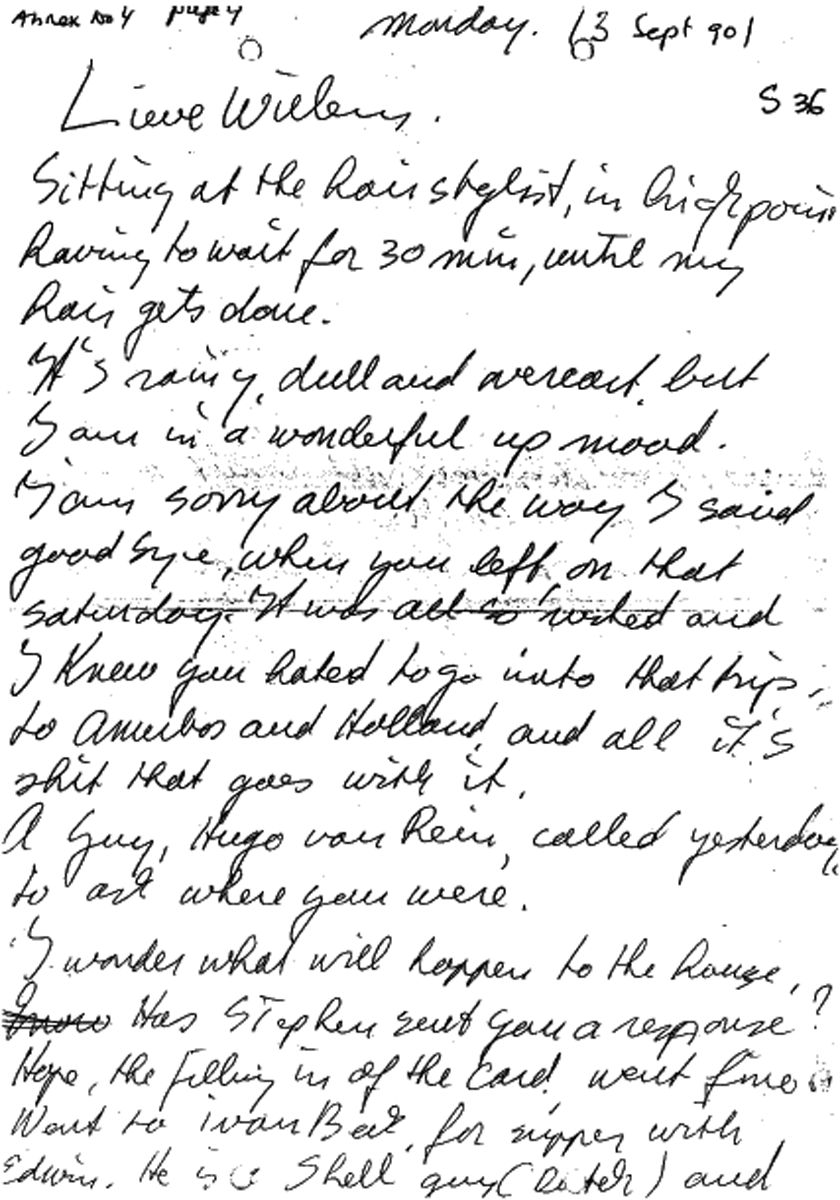 Annex No 4 page 4
Monday. 13 Sept 901
S 36
Lieve Willem,
Sitting at the hairstylist, in highpoint
having to wait for 30 min, until my
hair gets done.
It's rainy, dull and overcast, but
I am in a wonderful up mood.
I am sorry about the way I said
good bye, when you left, on that
saturday. It was all so rushed and
I knew you hated to go into that trip,
to and Holland, and all it's
shit that goes with it.
A Guy, Hugo van Rein, called yesterday,
to ask where you were.
I wonder what will happen to the house,
Has Stephen sent you a response?
Hope, the filling in of the card, went fine
Went to for supper with
Edwin. He is a Shell guy (Dutch) and